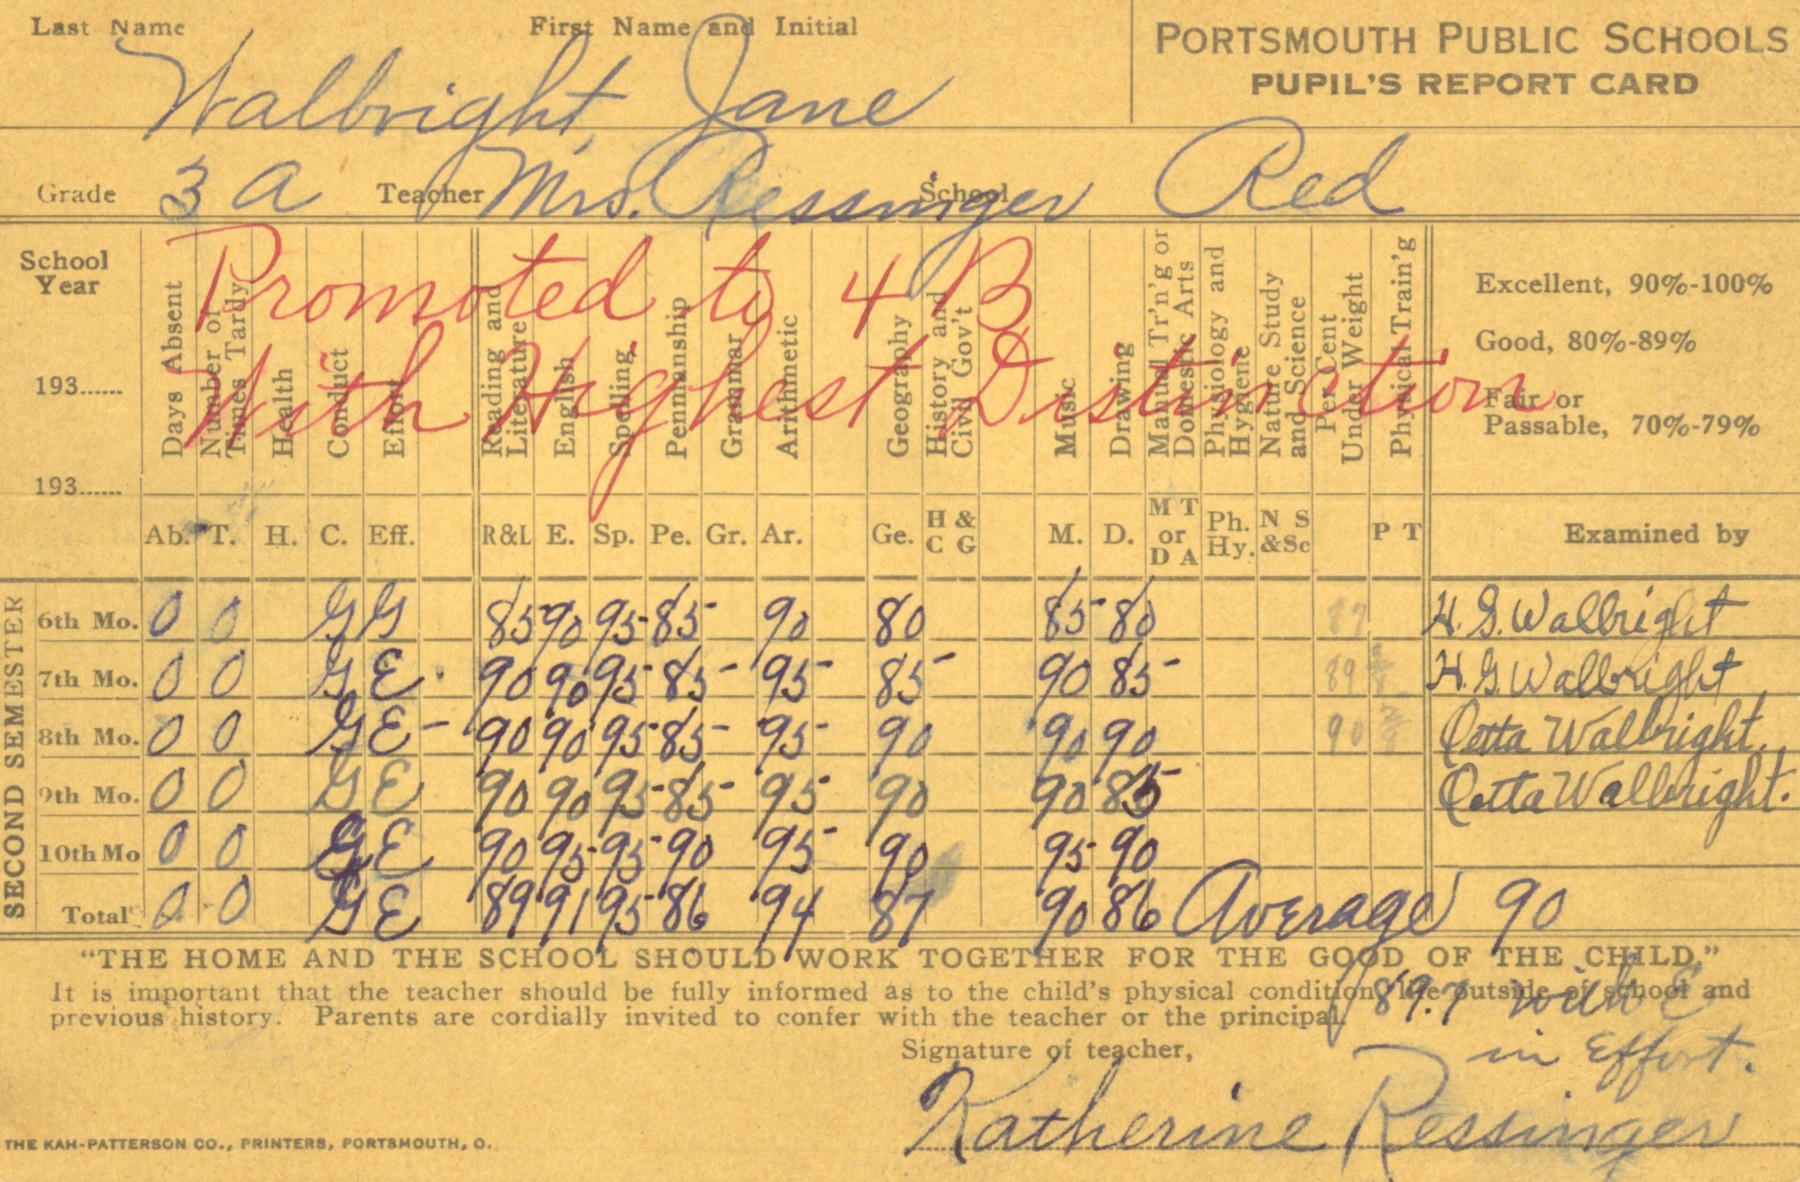 Last Name First Name and Initial
Walbright, Jane
PORTSMOUTH PUBLIC SCHOOLS
PUPIL'S REPORT CARD
Grade 3 A Teacher Mrs. Ressinger School Red
Promoted to 4 B
With Highest Distinction
School Year
193......
193......
Days Absent
Number of Times Tardy
Health
Conduct
Effort
Reading and Literature
English
Spelling
Penmanship
Grammar
Arithmetic
Geography
History and Civil Gov't
Music
Drawing
Manual Tr'n'g or Domestic Arts
Physiology and Hygiene
Nature Study and Science
Per Cent Under Weight
Physical Train'g
Excellent, 90%-100%
Good, 80%-89%
Fair or
Passable, 70%-79%
Ab. T. H. C. Eff. R&L E. Sp. Pe. Gr. Ar. Ge. H & C G M. D. M T or D A Ph. Hy. N S &Sc P T Examined by
SECOND SEMESTER
6th Mo. 0 0 G G 85 90 95 85 90 80 85 80 87 H. G. Walbright
7th Mo. 0 0 G E 90 90 95 85 95 85 90 85 89 H. G. Walbright
8th Mo. 0 0 G E- 90 90 95 85 95 90 90 90 90 Oetta Walbright.
9th Mo. 0 0 G E 90 90 95 85 95 90 90 85 Oetta Walbright.
10th Mo 0 0 G E 90 95 95 90 95 90 95 90
Total 0 0 G E 89 91 95 86 94 87 90 86 Average 90
"THE HOME AND THE SCHOOL SHOULD WORK TOGETHER FOR THE GOOD OF THE CHILD."
It is important that the teacher should be fully informed as to the child's physical condition, life outside of school and
previous history. Parents are cordially invited to confer with the teacher or the principal.
89.7 with E
in Effort.
Signature of teacher,
Katherine Ressinger
THE KAH-PATTERSON CO., PRINTERS, PORTSMOUTH, O.